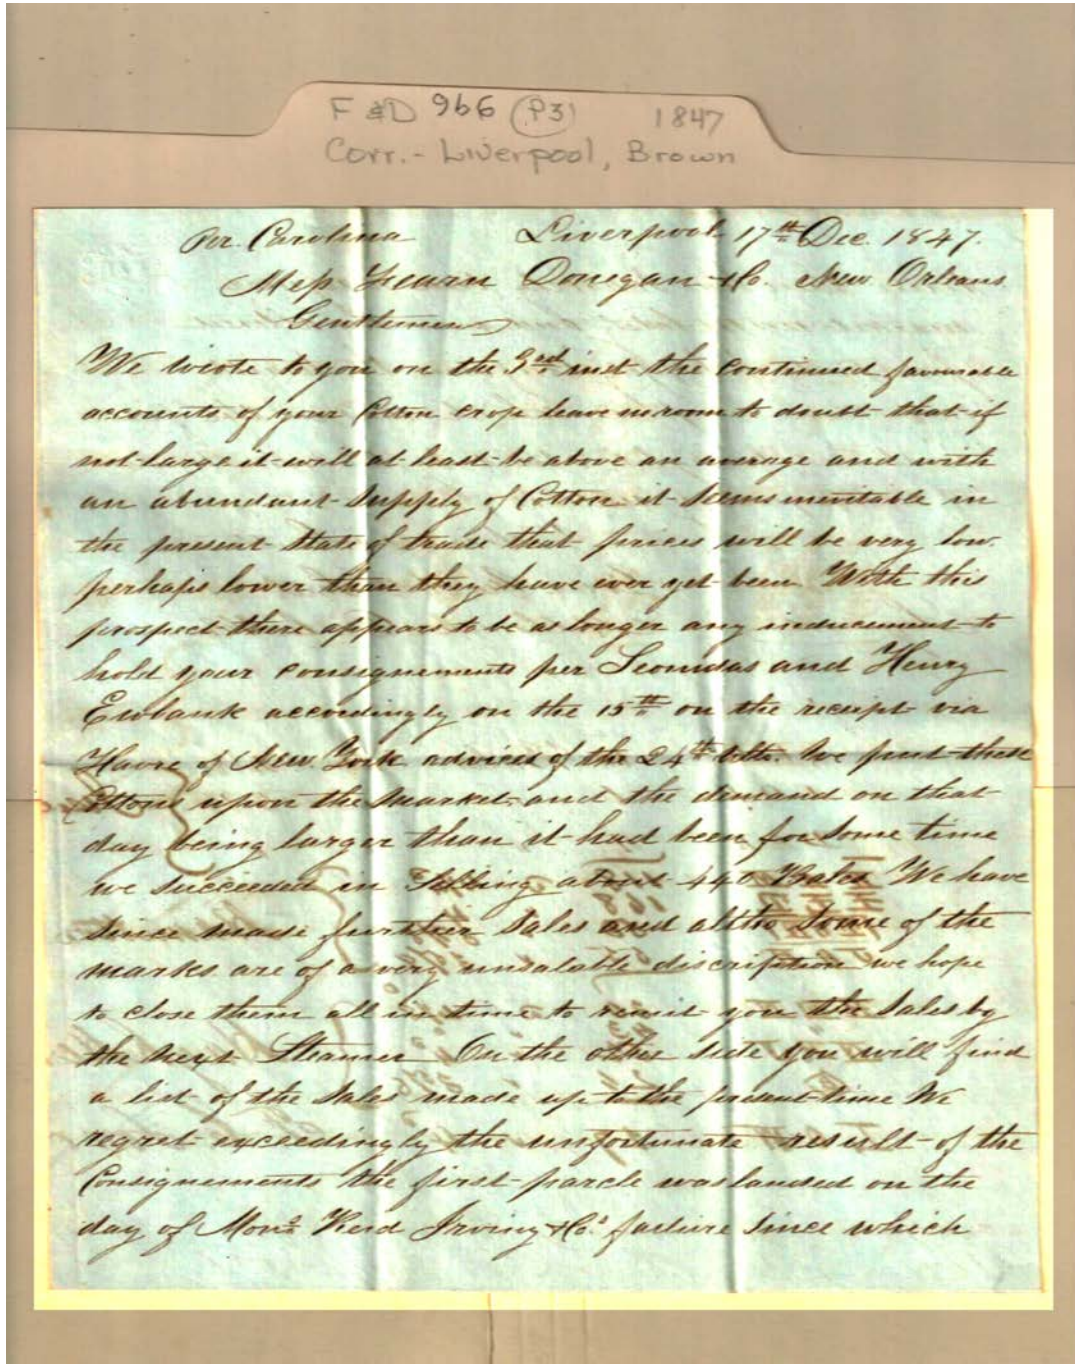 F &D 966 (P3) 1847
Corr. - Liverpool, Brown
Per. Carolina Liverpool 17th Dec. 1847.
Mess Fearn Donegan & Co. New Orleans
Gentlemen
We wrote to you on the 3rd inst the continued favourable
accounts of your Cotton crop leave no room to doubt that if
not large it will at least be above an average and with
an abundant supply of Cotton it seems inevitable in
the present state of trade that prices will be very low
perhaps lower than they have ever yet been With this
prospect there appears to be no longer any inducement to
hold your consignements per Leonidas and Henry
Ewbank accordingly on the 15th on the receipt via
Havre of New York advices of the 24th ulto. We put these
Cottons upon the market and the demand on that
day being larger than it had been for some time
we succeeded in selling about 440 Bales We have
since made further sales and altho some of the
marks are of a very unsalable discription we hope
to close them all in time to remit you the sales by
the next Steamer On the other side you will find
a list of the sales made up to the present time We
regret exceedingly the unfortunate result of the
Consignements the first parcle was landed on the
day of Reid Irving & Co.s failure since which